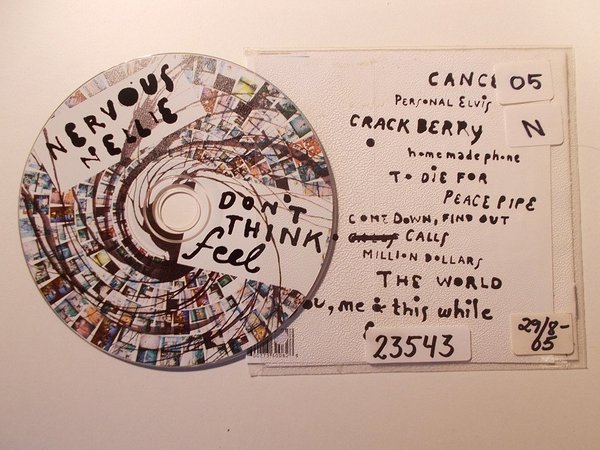 NERVOUS
NELLIE
DON'T
THINK
feel
CANCE
05
PERSONAL ELVIS
CRACKBERRY
N
homemadephone
TO DIE FOR
PEACE PIPE
COME DOWN, FIND OUT
CALLS
MILLION DOLLARS
THE WORLD
ou, me & this while
23543
29/8-
05